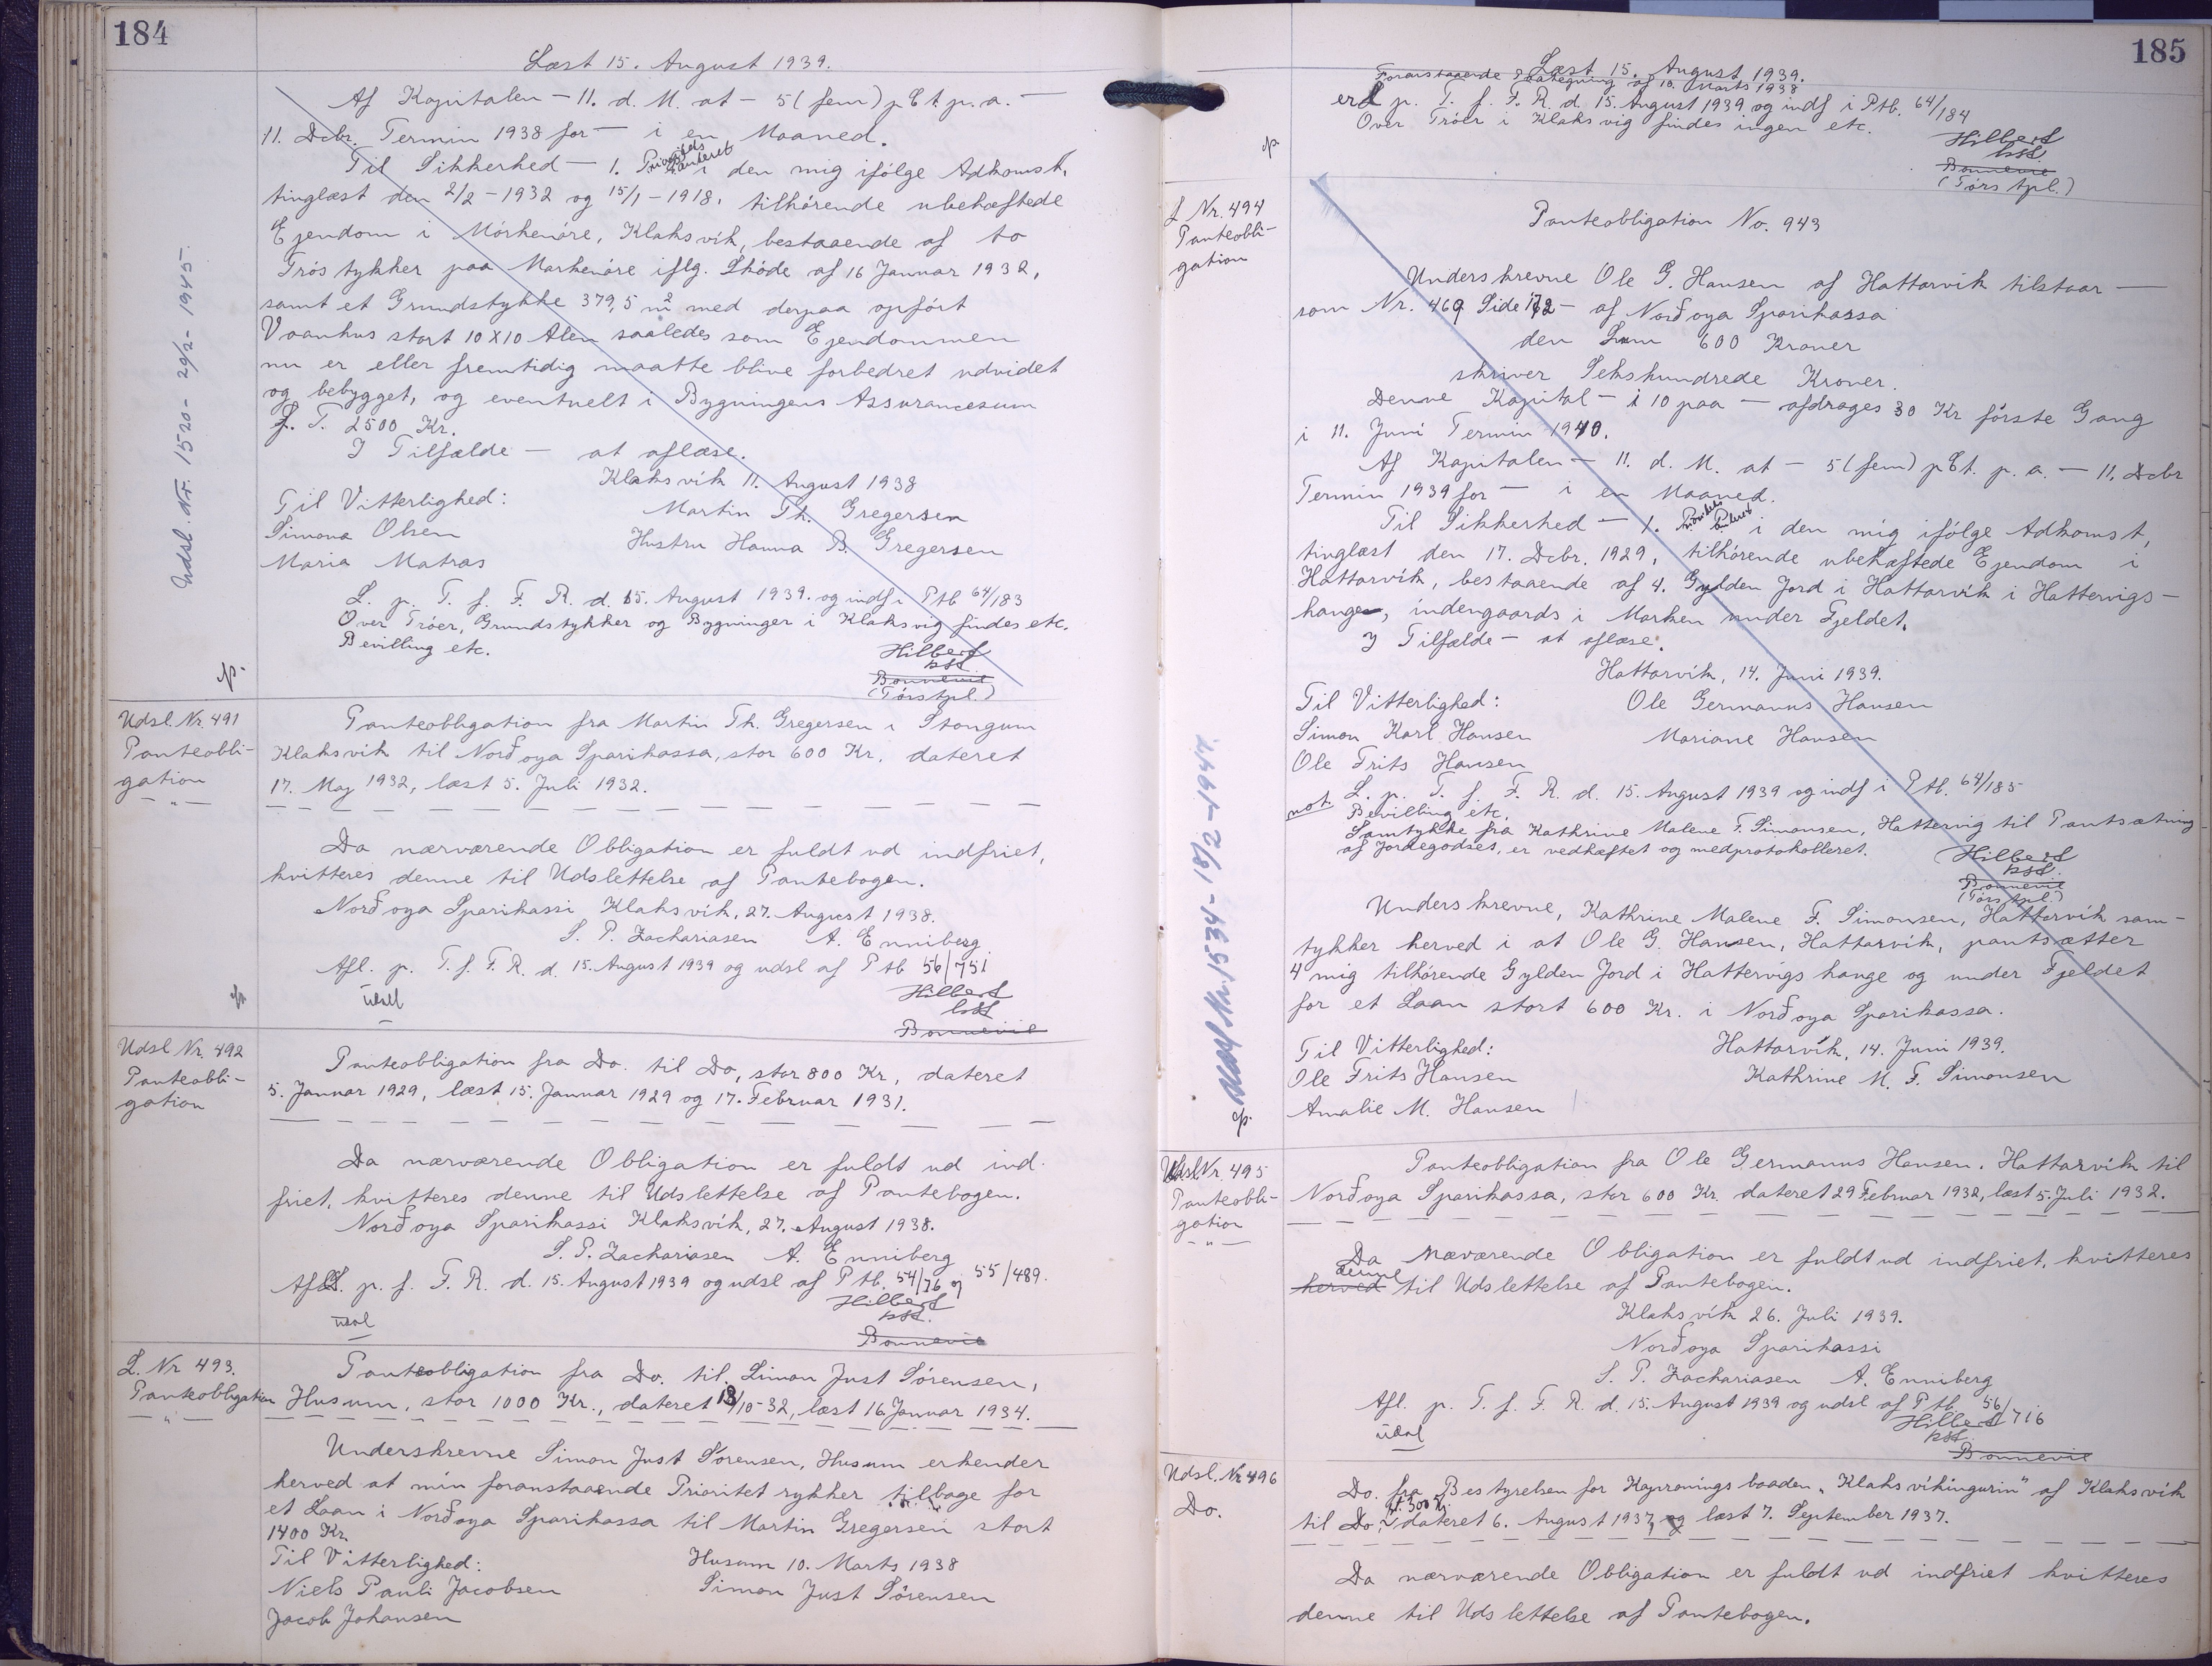 184
Læst 15. August 1939.
Af Kapitalen — 11. d. M. at — 5 (fem) pCt. p. a. —
11. Dcbr. Termin 1938 for — i en Maaned.
Til Sikkerhed — 1. Prioritets Panteret i den mig ifölge Adkomst,
tinglæst den 2/2 - 1932 og 15/1 - 1918, tilhörende ubehæftede
Ejendom i Mörkenöre, Klaksvík, bestaaende af to
Tröstykker paa Markenöre iflg. Sköde af 16 Januar 1932,
samt et Grundstykke 379,5 m² med derpaa opfört
Vaanhus stort 10 X 10 Alen saaledes som Ejendommen
nu er eller fremtidig maatte blive forbedret udvidet
og bebygget, og eventuelt i Bygningens Assurancesum
p. T. 2500 Kr.
I Tilfælde — at aflæse.
Klaksvík 11. August 1938
Til Vitterlighed:
Martin Th. Gregersen
Simona Olsen
Hustru Hanna B. Gregersen
Maria Matras
L. p. T. f. F. R. d. 15. August 1939. og indf i Ptb 64/183
Over Tröer, Grundstykker og Bygninger i Klaksvig findes etc.
Bevilling etc.
Hilbert
kst.
Bonnevie
(Törs tpl.)
Udsl. Nr. 1520 - 29/2 - 1945.
Udsl. Nr. 491
Panteobli-
gation
— " —
Panteobligation fra Martin Th. Gregersen i Stongum
Klaksvík til Norðoya Sparikassa, stor 600 Kr. dateret
17. Maj 1932, læst 5. Juli 1932.
Da nærværende Obligation er fuldt ud indfriet,
kvitteres denne til Udslettelse af Pantebogen.
Norðoya Sparikassi Klaksvík, 27. August 1938.
S. P. Zachariasen A. Enniberg
Afl. p. T. f. F. R. d. 15. August 1939 og udsl af Ptb 56/751
udsl
Hilbert
kst
Bonnevie
Udsl Nr. 492
Panteobli-
gation
Panteobligation fra Do. til Do, stor 800 Kr, dateret
5. Januar 1929, læst 15. Januar 1929 og 17. Februar 1931.
Da nærværende Obligation er fuldt ud ind-
friet, kvitteres denne til Udslettelse af Pantebogen.
Norðoya Sparikassi Klaksvík, 27. August 1938.
S. P. Zachariasen A. Enniberg
Afl. p. f. F. R. d. 15. August 1939 og udsl af Ptb. 54/76 og 55/489.
udsl
Hilbert
kst.
Bonnevie
L. Nr 493.
Panteobligation
— " —
Panteobligation fra Do. til Simon Just Sörensen,
Husum, stor 1000 Kr., dateret 18/10-32, læst 16. Januar 1934.
Underskrevne Simon Just Sörensen, Husum erkender
herved at min foranstaaende Prioritet rykker tilbage for
et Laan i Norðoya Sparikassa til Martin Gregersen stort
1400 Kr.
Til Vitterlighed:
Husum 10. Marts 1938
Niels Pauli Jacobsen
Simon Just Sörensen
Jacob Johansen
185
Læst 15. August 1939.
Foranstaaende Paategning af 10. Marts 1938
er L p. T. f. F. R. d. 15. August 1939 og indf i Ptb. 64/184
Over Tröer i Klaksvig findes ingen etc.
Hilbert
kst.
Bonnevie
(Törs tpl.)
L Nr. 494
Panteobli-
gation
Panteobligation No. 943
Underskrevne Ole G. Hansen af Hattarvik tilstaar —
som Nr. 469 Side 172 — af Norðoya Sparikassa
den Sum 600 Kroner
skriver Sekshundrede Kroner.
Denne Kapital — i 10 paa — afdrages 30 Kr förste Gang
i 11. Juni Termin 1940.
Af Kapitalen — 11. d. M. at — 5 (fem) pCt. p. a. — 11. Dcbr
Termin 1939 for — i en Maaned.
Til Sikkerhed — 1. Prioritets Panteret i den mig ifölge Adkomst,
tinglæst den 17. Dcbr. 1929, tilhörende ubehæftede Ejendom i
Hattarvík, bestaaende af 4. Gylden Jord i Hattarvík i Hattervigs-
hauge, indengaards i Marken under Fjeldet.
I Tilfælde — at aflæse.
Hattarvík, 14. Juni 1939.
Til Vitterlighed:
Ole Germanus Hansen
Simon Karl Hansen
Mariane Hansen
Ole Frits Hansen
not. L. p. T. f. F. R. d. 15. August 1939 og indf i Ptb. 64/185
Bevilling etc.
Samtykke fra Kathrine Malene F. Simonsen, Hattervig til Pantsætning
af Jordegodset, er vedhæftet og medprotokolleret.
Hilbert
kst.
Bonnevie
(Törs tpl.)
Underskrevne, Kathrine Malene F. Simonsen, Hattarvík sam-
tykker herved i at Ole G. Hansen, Hattarvík, pantsætter
4 mig tilhörende Gylden Jord i Hattervigs hauge og under Fjeldet
for et Laan stort 600 Kr. i Norðoya Sparikassa.
Til Vitterlighed:
Hattarvík, 14. Juni 1939.
Ole Frits Hansen
Kathrine M. F. Simonsen
Amalie M. Hansen
Udsl Nr. 495
Panteobli-
gation
— " —
Panteobligation fra Ole Germanus Hansen, Hattarvík til
Norðoya Sparikassa, stor 600 Kr. dateret 29 Februar 1932, læst 5. Juli 1932.
Da næværende Obligation er fuldt ud indfriet, kvitteres
herved denne til Udslettelse af Pantebogen.
Klaksvík 26. Juli 1939.
Norðoya Sparikassi
S. P. Zachariasen A. Enniberg
Afl. p. T. f. F. R. d. 15. August 1939 og udsl af Ptb. 56/716
udsl
Hilbert
kst
Bonnevie
Udsl. Nr 496
Do.
Do. fra Bestyrelsen for Kaproningsbaaden "Klaksvíkingurin" af Klaksvík
til Do, st. 300 Kr. dateret 6. August 1937, og læst 7. September 1937.
Da nærværende Obligation er fuldt ud indfriet kvitteres
denne til Udslettelse af Pantebogen.